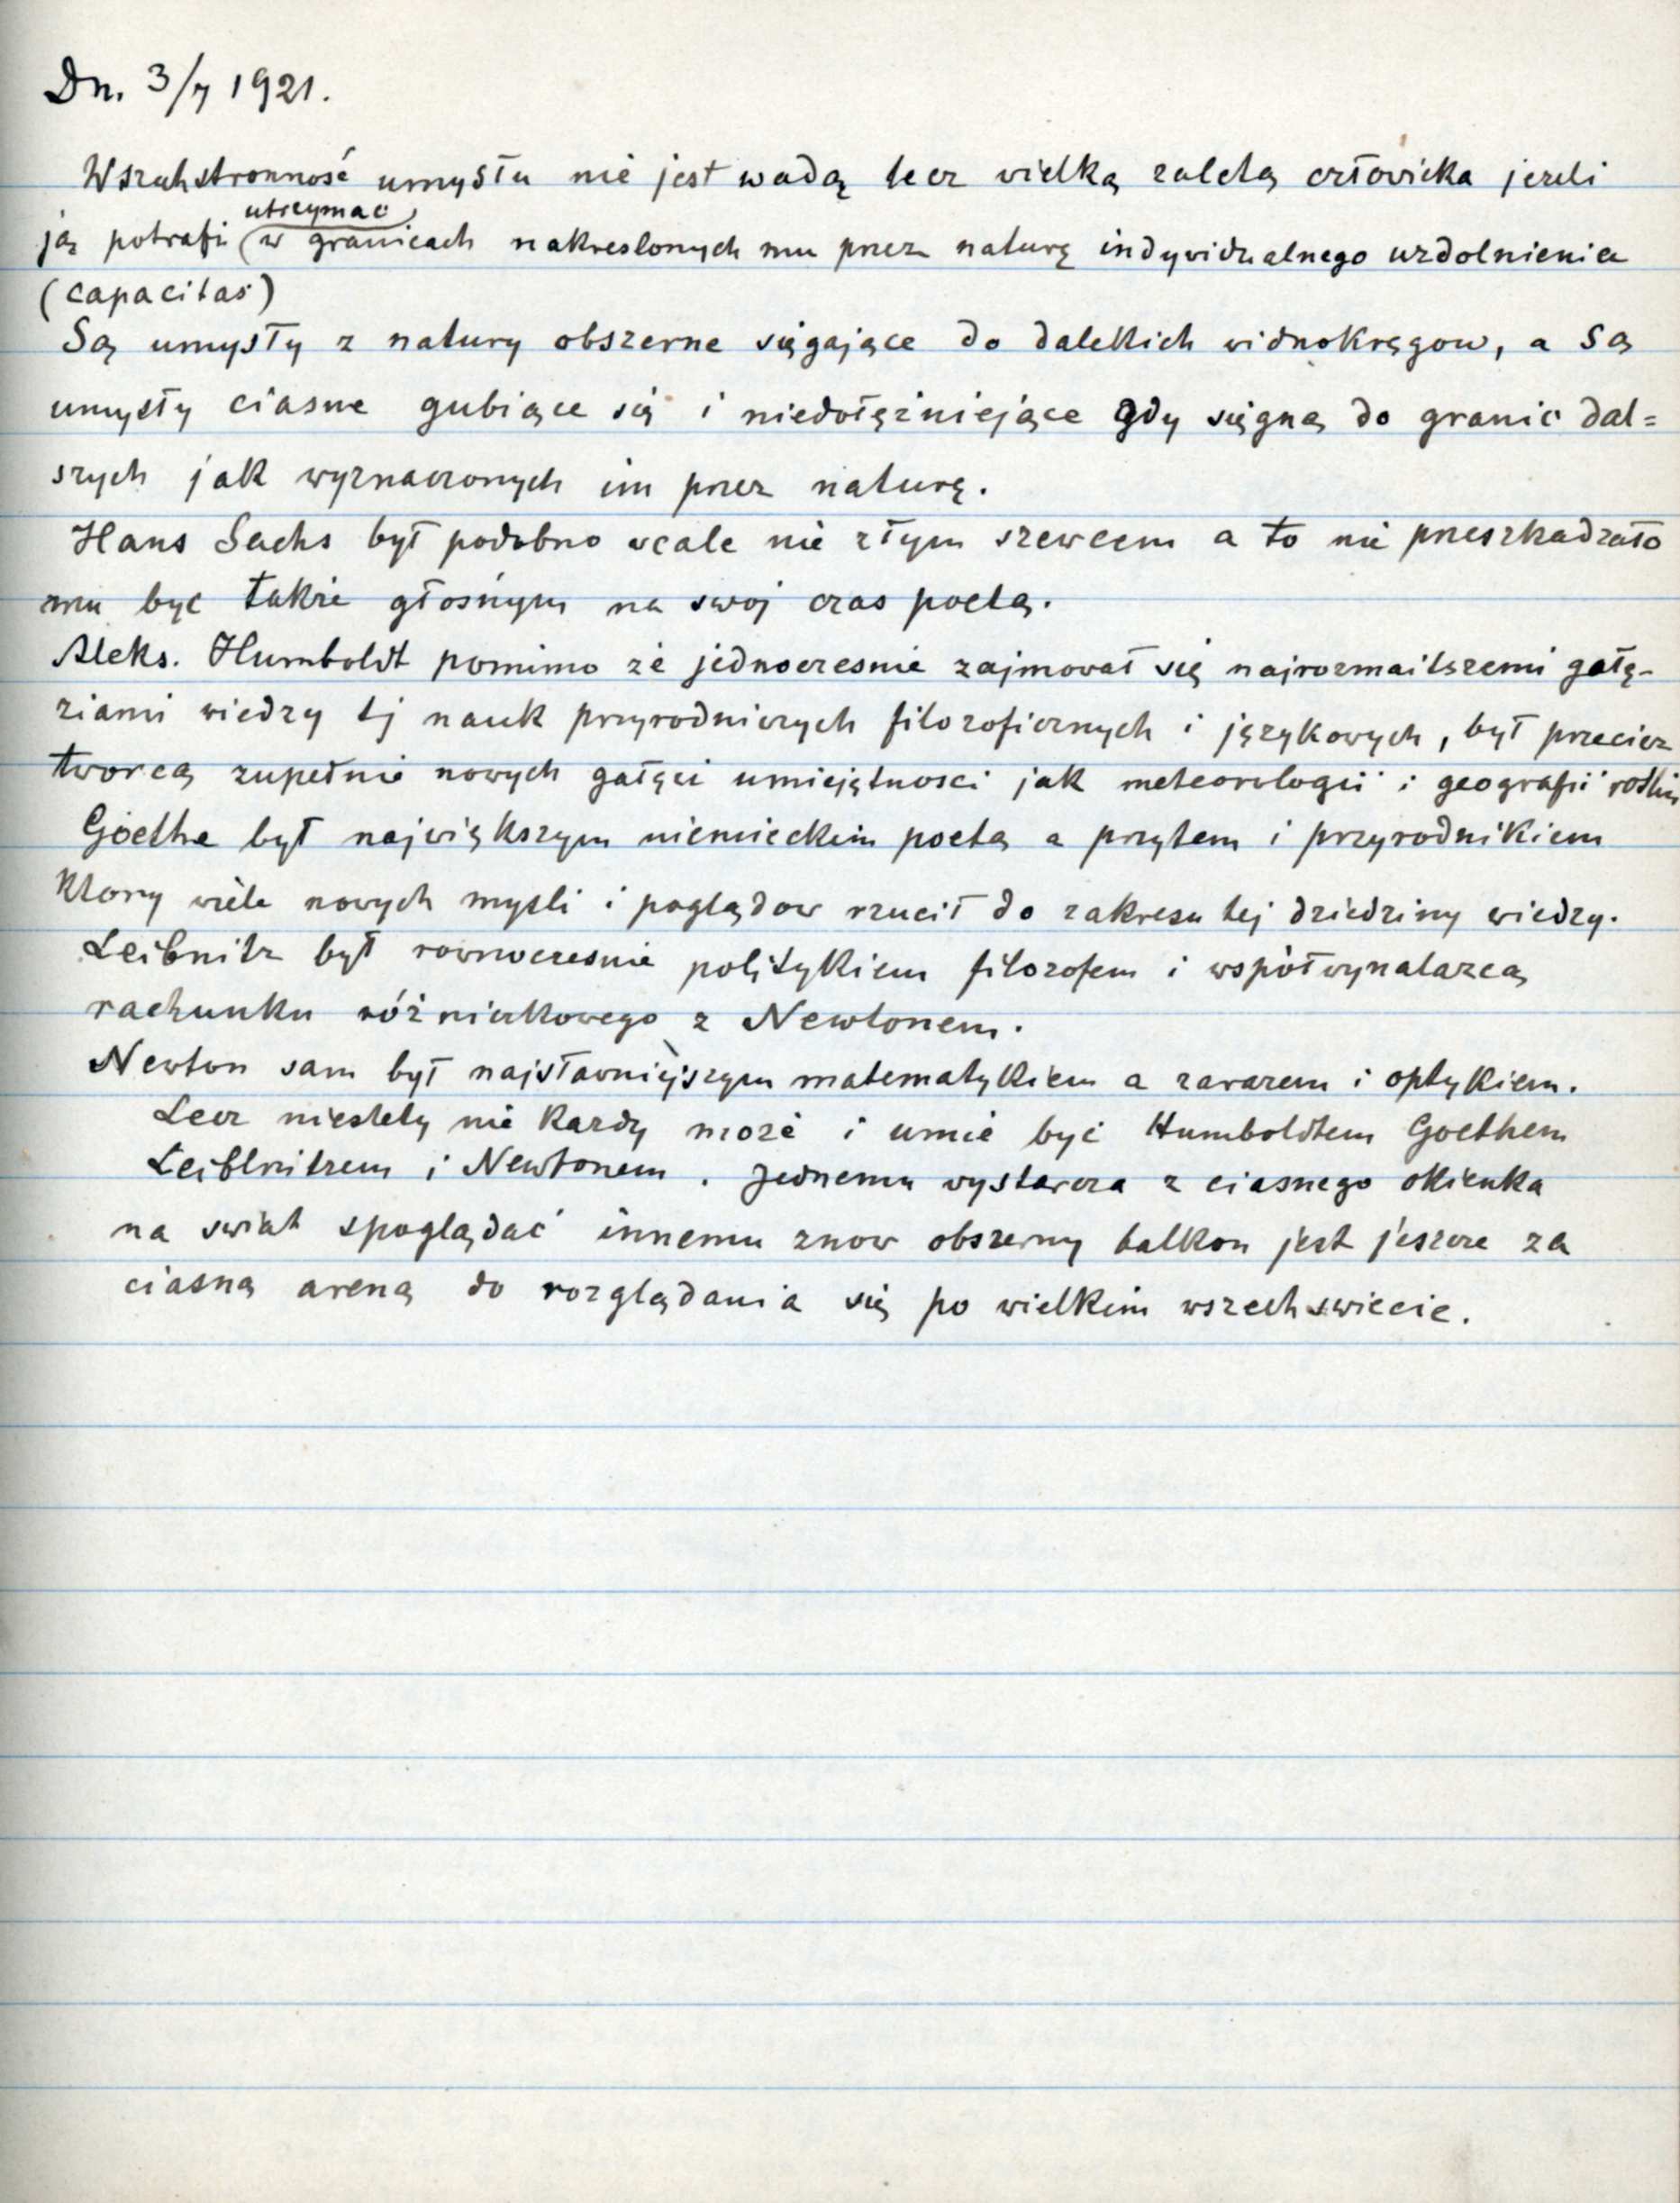 Dn. 3/7 1921.
Wszechstronność umysłu nie jest wadą lecz wielką zaletą człowieka jezeli
utrzymac
ją potrafi (w granicach nakreslonych mu przez naturę indywidualnego uzdolnienia
(capacitas)
Są umysły z natury obszerne sięgające do dalekich widnokręgow, a są
umysły ciasne gubiące się i niedołężniejące gdy sięgną do granic dal=
szych jak wyznaczonych im przez naturę.
Hans Sachs był podobno wcale nie złym szewcem a to nie przeszkadzało
mu byc także głośnym na swoj czas poetą.
Aleks. Humboldt pomimo że jednoczesnie zajmował się najrozmaitszemi gałę-
ziami wiedzy tj nauk przyrodniczych filozoficznych i językowych, był przeciez
tworcą zupełnie nowych gałęzi umiejętnosci jak meteorologii i geografii roslin
Goethe był największym niemieckim poetą a przytem i przyrodnikiem
ktory wiele nowych mysli i poglądow rzucił do zakresu tej dziedziny wiedzy.
Leibnitz był rownoczesnie politykiem filozofem i współwynalazcą
rachunku różniczkowego z Newtonem.
Newton sam był najsławniejszym matematykiem a zarazem i optykiem.
Lecz niestety nie kazdy może i umie być Humboldtem Goethem
Leiblnitzem i Newtonem. Jednemu wystarcza z ciasnego okienka
na swiat spoglądać innemu znow obszerny balkon jest jeszcze za
ciasną areną do rozglądania się po wielkim wszechswiecie.